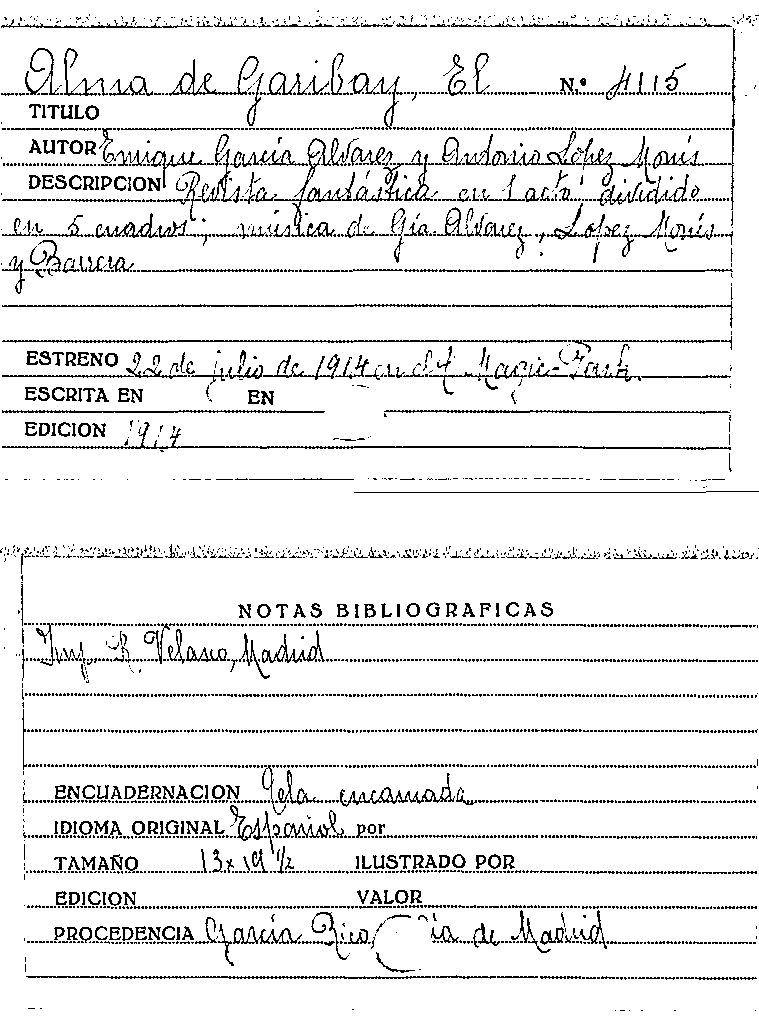 Alma de Garibay, El N.º 4115
TITULO
AUTOR Enrique García Alvarez y Antonio López Monís
DESCRIPCION Revista fantástica en 1 acto, dividido
en 5 cuadros; música de Gía Alvarez, López Monís
y Barrera
ESTRENO 22 de julio de 1914 en el Magic-Park.
ESCRITA EN EN
EDICION 1914
NOTAS BIBLIOGRAFICAS
Imp. R. Velasco, Madrid
ENCUADERNACION Tela encarnada
IDIOMA ORIGINAL Español por
TAMAÑO 13 x 19 1/2 ILUSTRADO POR
EDICION VALOR
PROCEDENCIA García Rico, Cía de Madrid